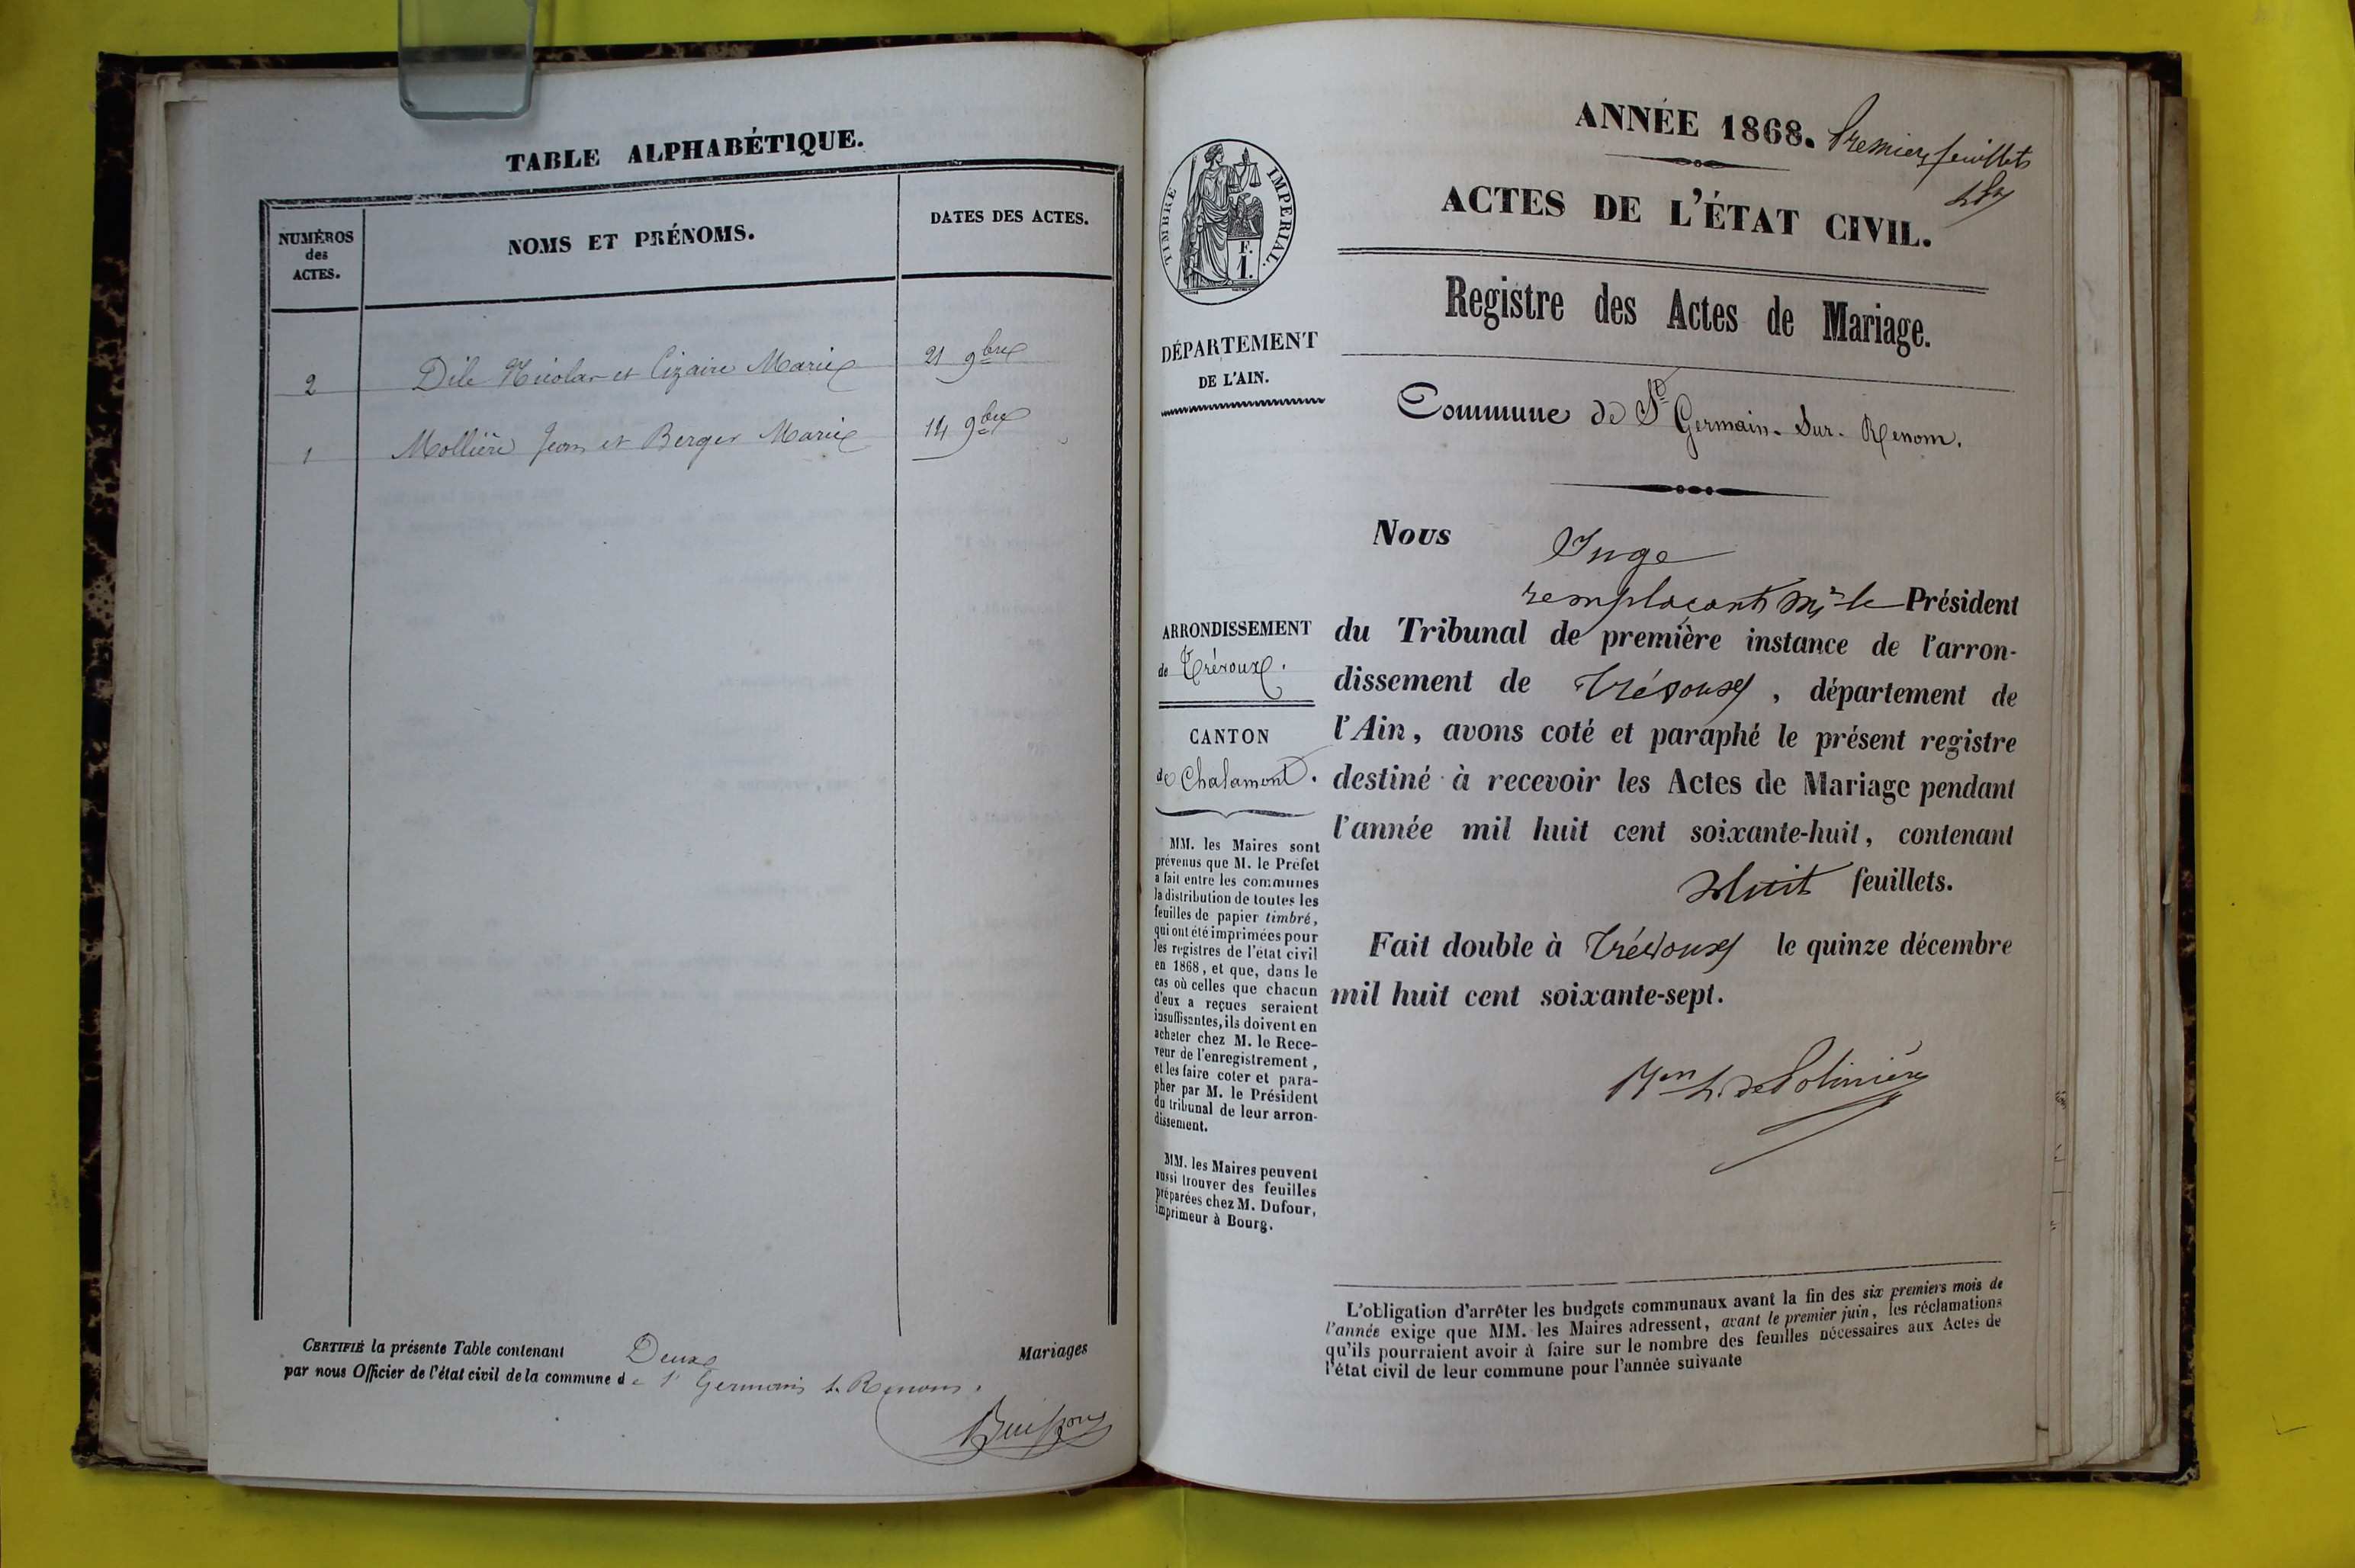 TABLE ALPHABÉTIQUE.
NUMÉROS
des
ACTES.
NOMS ET PRÉNOMS.
DATES DES ACTES.
2 Dile Nicolas et Cizaire Marie 21 9bre
1 Mollière Jean et Berger Marie 14 9bre
CERTIFIÉ la présente Table contenant Deux Mariages
par nous Officier de l'état civil de la commune de St Germain s. Renom.
Buisson
ANNÉE 1868. Premier feuillet
ACTES DE L'ÉTAT CIVIL.
Registre des Actes de Mariage.
TIMBRE IMPERIAL.
F.
1.
DÉPARTEMENT
DE L'AIN.
Commune de St Germain-Sur-Renom.
Nous Juge
remplaçant Mr le Président
ARRONDISSEMENT
de Trévoux.
CANTON
de Chalamont.
du Tribunal de première instance de l'arron-
dissement de Trévoux, département de
l'Ain, avons coté et paraphé le présent registre
destiné à recevoir les Actes de Mariage pendant
l'année mil huit cent soixante-huit, contenant
Huit feuillets.
Fait double à Trévoux le quinze décembre
mil huit cent soixante-sept.
de Polinière
MM. les Maires sont
prévenus que M. le Préfet
a fait entre les communes
la distribution de toutes les
feuilles de papier timbré,
qui ont été imprimées pour
les registres de l'état civil
en 1868, et que, dans le
cas où celles que chacun
d'eux a reçues seraient
insuffisantes, ils doivent en
acheter chez M. le Rece-
veur de l'enregistrement,
et les faire coter et para-
pher par M. le Président
du tribunal de leur arron-
dissement.
MM. les Maires peuvent
aussi trouver des feuilles
préparées chez M. Dufour,
imprimeur à Bourg.
L'obligation d'arrêter les budgets communaux avant la fin des six premiers mois de
l'année exige que MM. les Maires adressent, avant le premier juin, les réclamations
qu'ils pourraient avoir à faire sur le nombre des feuilles nécessaires aux Actes de
l'état civil de leur commune pour l'année suivante